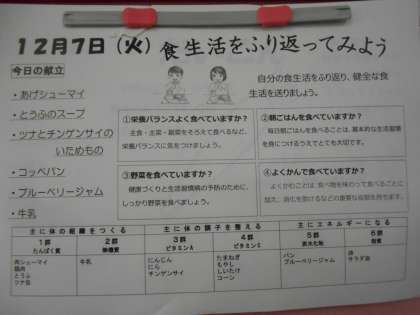 12月7日（火）食生活をふり返ってみよう
今日の献立
・あげシューマイ
・とうふのスープ
・ツナとチンゲンサイの
いためもの
・コッペパン
・ブルーベリージャム
・牛乳
自分の食生活をふり返り、健全な食
生活を送りましょう。
①栄養バランスよく食べていますか？
主食・主菜・副菜をそろえて食べるなど、
栄養バランスに気をつけましょう。
②朝ごはんを食べていますか？
毎日朝ごはんを食べることは、基本的な生活習慣
を身につけるうえでとても大切です。
③野菜を食べていますか？
健康づくりと生活習慣病の予防のために、
しっかり野菜を食べましょう。
④よくかんで食べていますか？
よくかむことは、食べ物を味わって食べることに
加え、消化を助けるなどの重要な役割を持ちます。
主に体の組織をつくる
主に体の調子を整える
主にエネルギーになる
1群
たんぱく質
2群
無機質
3群
ビタミンA
4群
ビタミンC
5群
炭水化物
6群
脂質
肉シューマイ
鶏肉
とうふ
ツナ缶
牛乳
にんじん
にら
チンゲンサイ
たまねぎ
もやし
しいたけ
コーン
パン
ブルーベリージャム
油
サラダ油